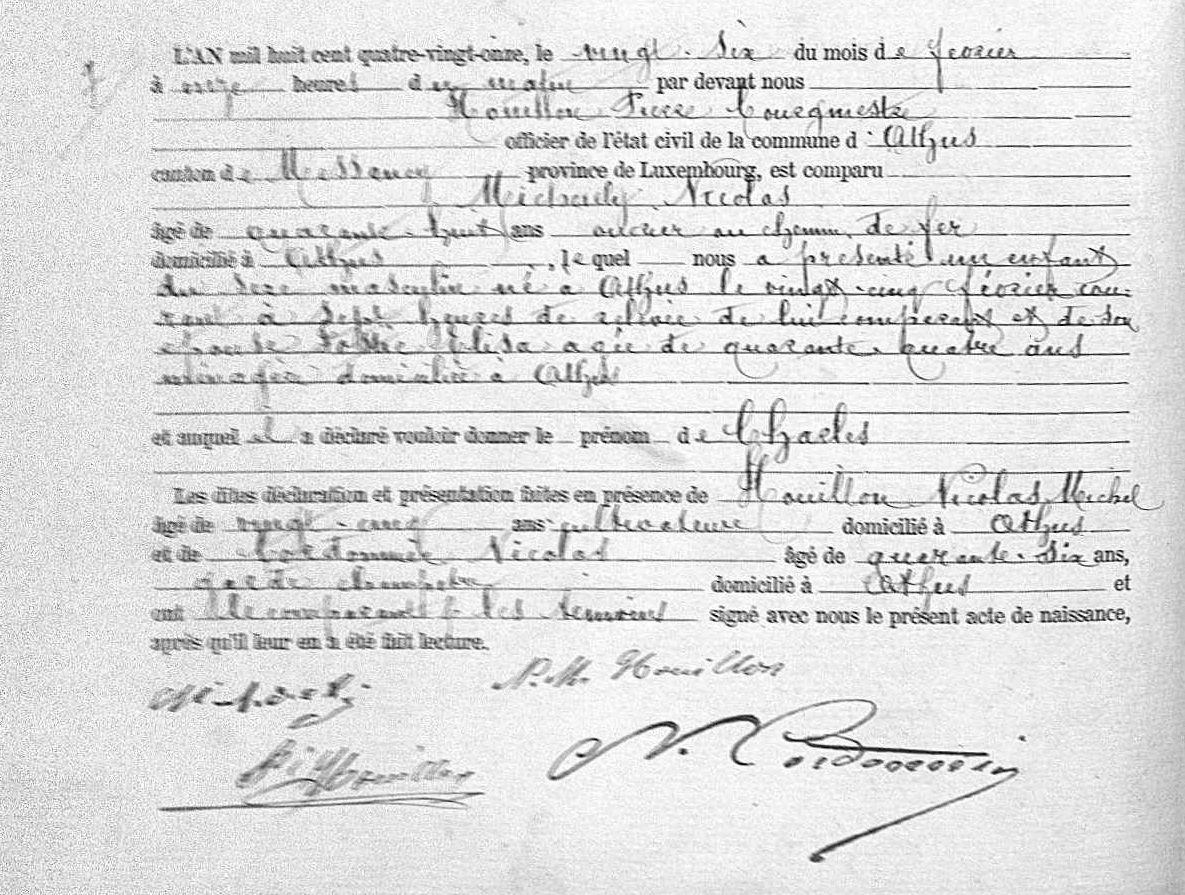 L'AN mil huit cent quatre-vingt-onze, le vingt-six du mois de février
à onze heures du matin par devant nous
Houillon Pierre bourgmestre
officier de l'état civil de la commune d'Athus
canton de Messancy province de Luxembourg, est comparu
Michaely Nicolas
âgé de quarante-huit ans ouvrier au chemin de fer
domicilié à Athus, lequel nous a présenté un enfant
du sexe masculin né à Athus le vingt-cinq février cou-
rant à sept heures de relevée de lui comparant et de son
épouse Elisa agée de quarante-quatre ans
ménagère domiciliée à Athus
et auquel il a déclaré vouloir donner le prénom de Charles
Les dites déclaration et présentation faites en présence de Houillon Nicolas Michel
âgé de vingt-cinq ans cultivateur domicilié à Athus
et de Cordonnier Nicolas âgé de quarante-six ans,
garde champêtre domicilié à Athus et
ont le comparant & les témoins signé avec nous le présent acte de naissance,
après qu'il leur en a été fait lecture.
Michaely N. M. Houillon
P. Houillon N. Cordonnier